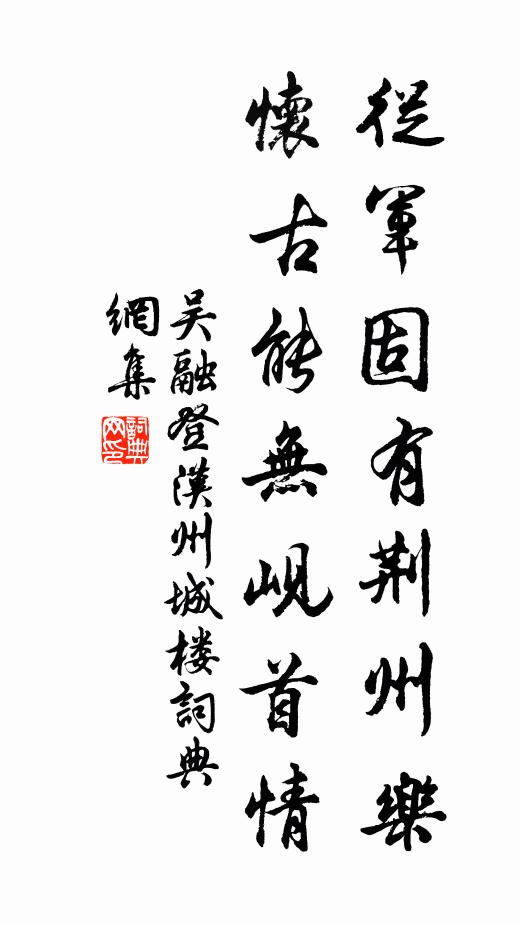 從軍固有荆州樂
懷古能無峴首情
吴融登漢州城楼詞典
網集
詞典網印